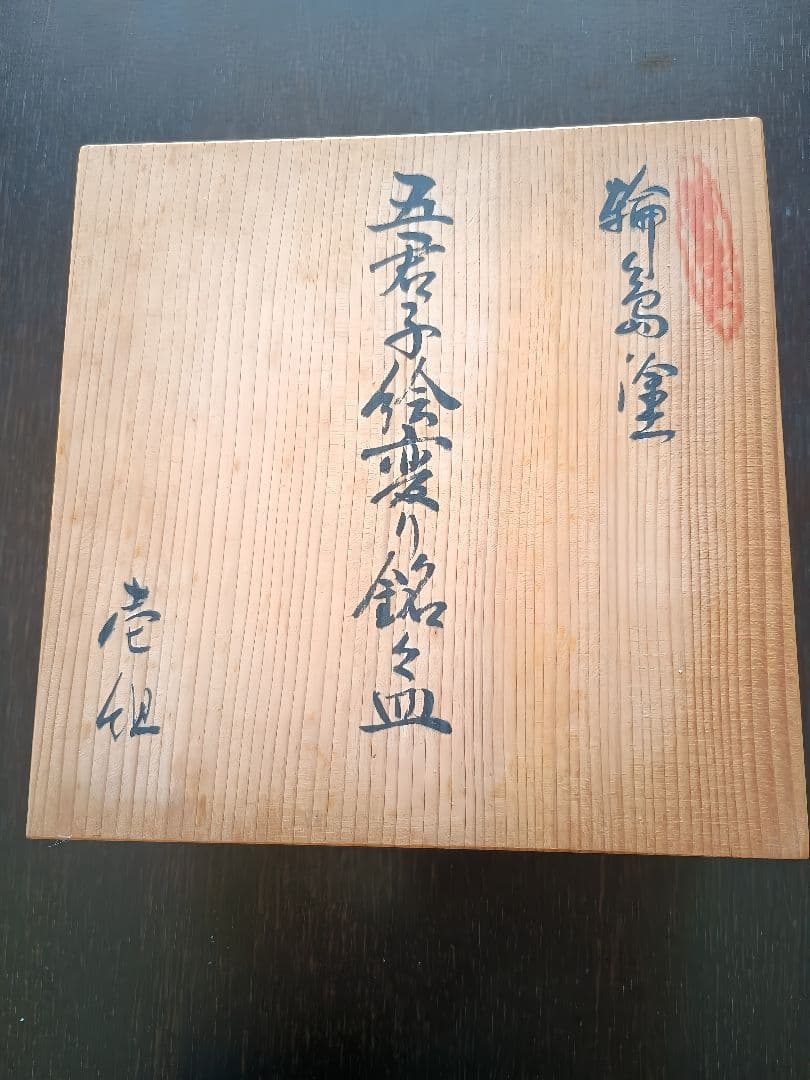 輪島塗
五君子絵変り銘々皿
壱組